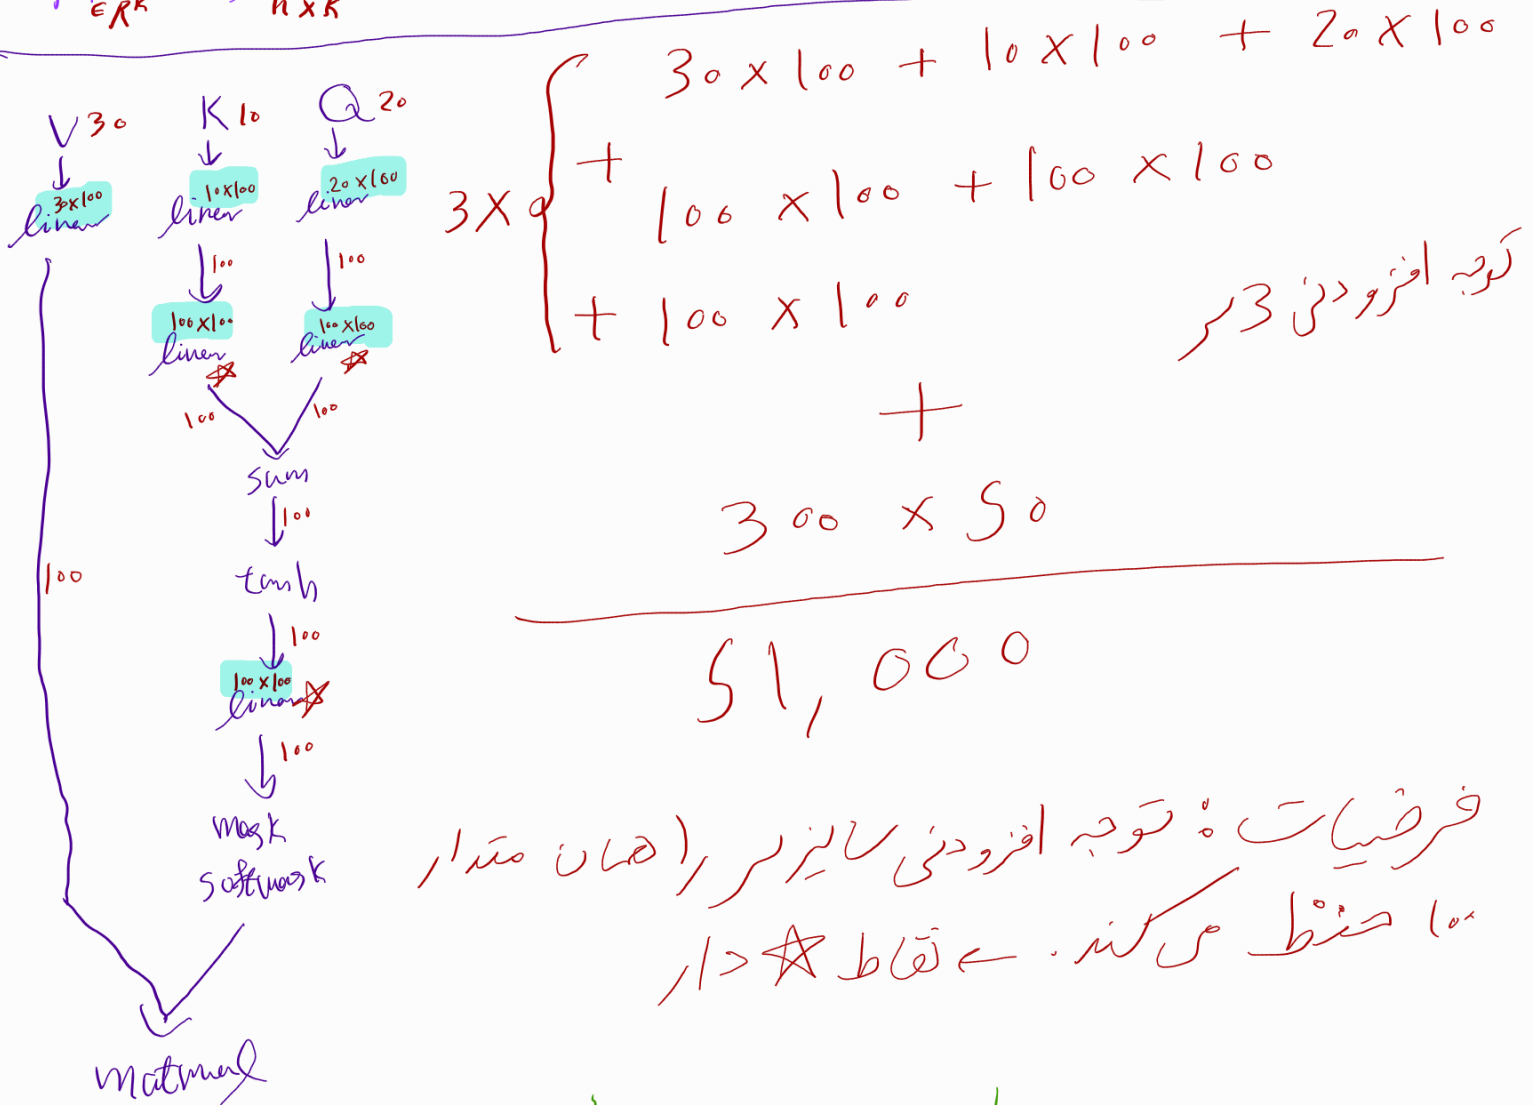 ∈ R^k n×k
V 30 K 10 Q 20
30×100 10×100 20×100
linear linear linear
100 100
100×100 100×100
linear ☆ linear ☆
100 100
sum
100
tanh
100 100
100×100
linear ☆
100
mask
softmask
matmul
3× { 30 × 100 + 10 × 100 + 20 × 100
+ 100 × 100 + 100 × 100
+ 100 × 100
توجه افزودنی 3 سر
+
300 × 50
51,000
فرضیات : توجه افزودنی سایز سر را همان مقدار
۱۰۰ حفظ می کند. ← نقاط ☆ دار